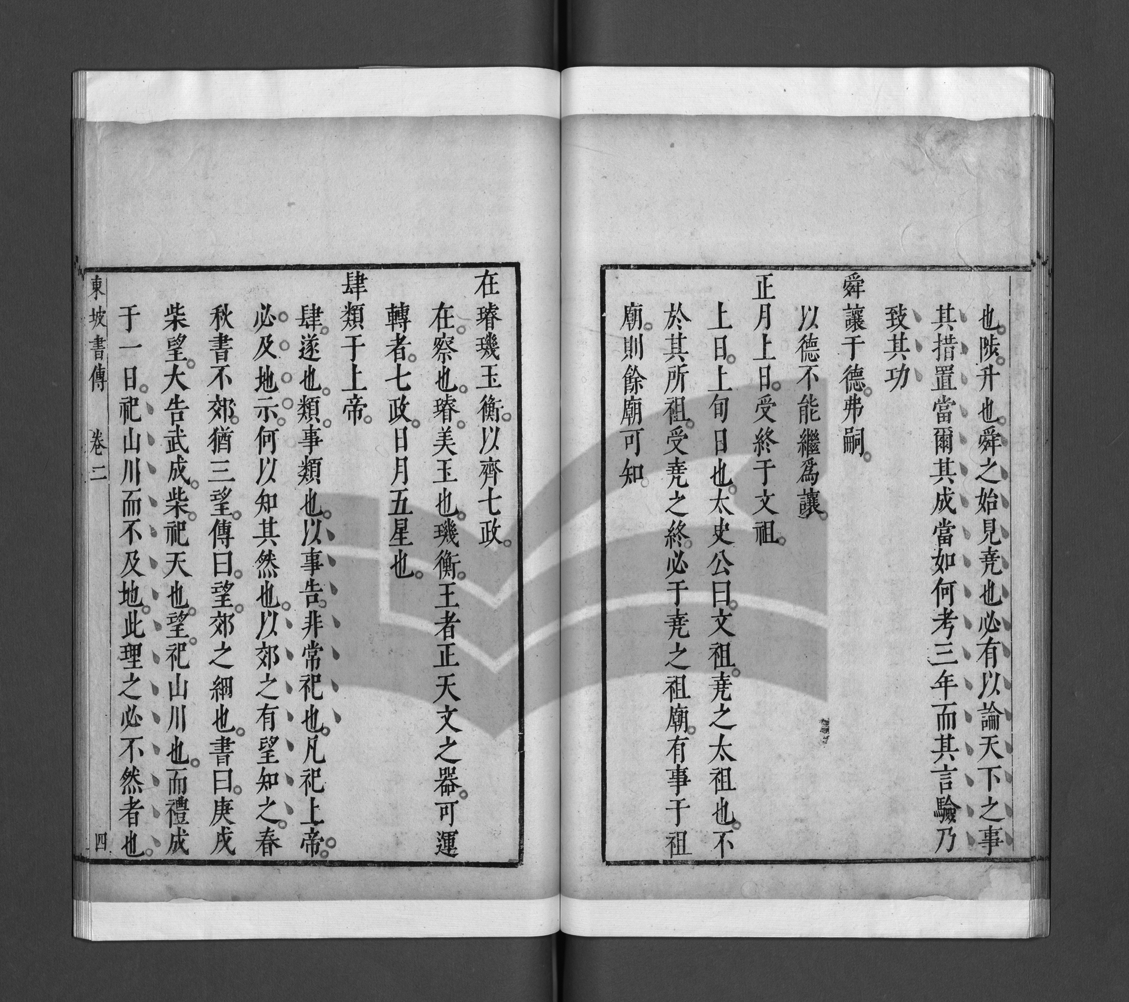 也陟升也舜之始見堯也必有以論天下之事
其措置當爾其成當如何考三年而其言驗乃
致其功
舜讓于德弗嗣
以德不能繼爲讓
正月上日受終于文祖
上日上旬日也太史公曰文祖堯之太祖也不
於其所祖受堯之終必于堯之祖廟有事于祖
廟則餘廟可知
在璿璣玉衡以齊七政
在察也璿美玉也璣衡王者正天文之器可運
轉者七政日月五星也
肆類于上帝
肆遂也類事類也以事告非常祀也凡祀上帝
必及地示何以知其然也以郊之有望知之春
秋書不郊猶三望傳曰望郊之細也書曰庚戌
柴望大告武成柴祀天也望祀山川也而禮成
于一日祀山川而不及地此理之必不然者也
東坡書傳 卷二 四